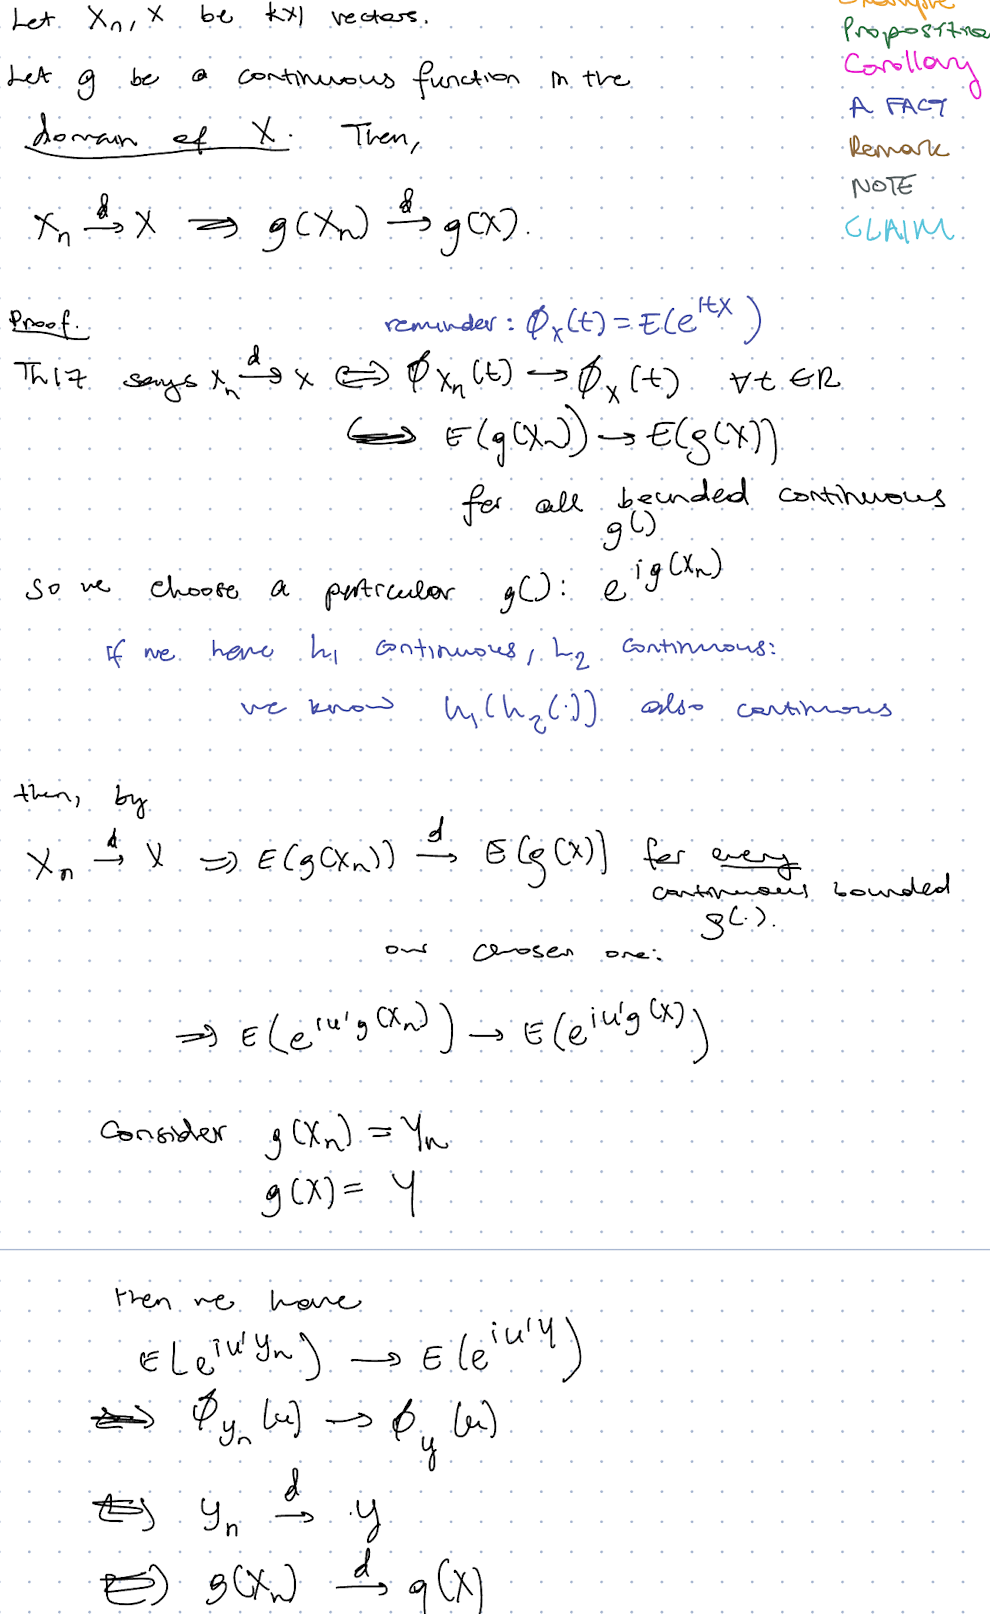 Let Xn, X be kx1 vectors.
Let g be a continuous function in the
domain of X. Then,
Xn →d X ⇒ g(Xn) →d g(X).
Example
Proposition
Corollary
A FACT
Remark
NOTE
CLAIM
Proof.
reminder: ϕX(t) = E(e^itX)
Th17 says Xn →d X ⇔ ϕXn(t) → ϕX(t) ∀t ∈ R
⇔ E(g(Xn)) → E(g(X))
for all bounded continuous
g()
So we choose a particular g(): e^ig(Xn)
if we have h1 continuous, h2 continuous:
we know h1(h2(·)) also continuous
then, by
Xn →d X ⇒ E(g(Xn)) →d E(g(X)) for every
continuous bounded
g(·).
our chosen one:
⇒ E(e^iu'g(Xn)) → E(e^iu'g(X))
Consider g(Xn) = Yn
g(X) = Y
then we have
E(e^iu'Yn) → E(e^iu'Y)
⇔ ϕyn(u) → ϕy(u)
⇔ yn →d y
⇔ g(Xn) →d g(X)